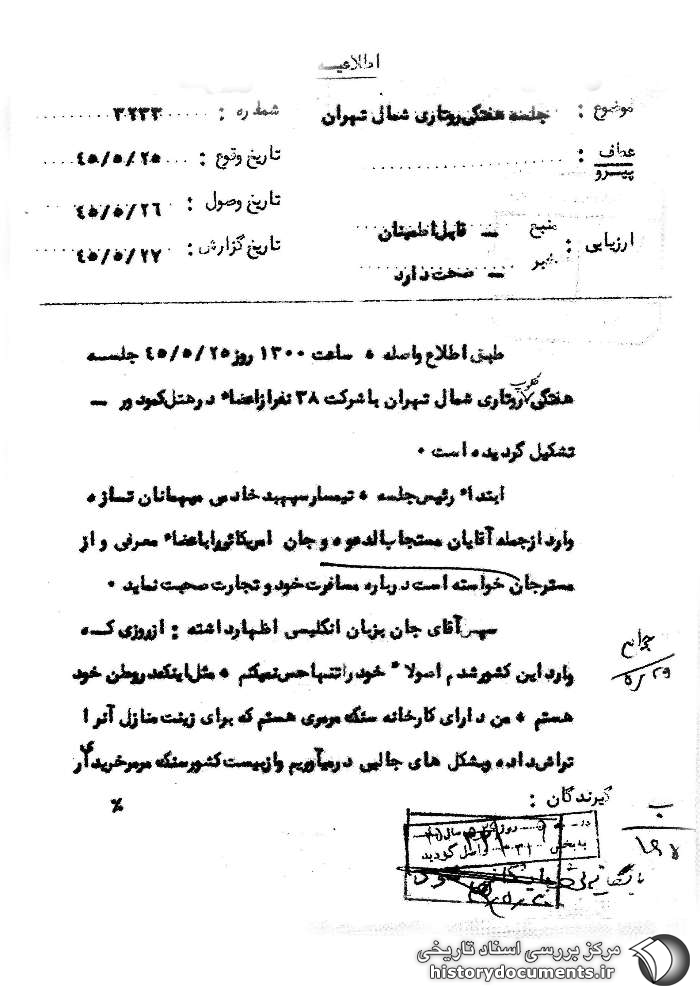 اطلاعیه
موضوع : جلسه هفتگی روتاری شمال تهران
شماره : ۳۲۳۳
عطف
پیرو :
تاریخ وقوع : ۴۵/۵/۲۵
تاریخ وصول : ۴۵/۵/۲۶
ارزیابی : منبع — قابل اطمینان
تاریخ گزارش : ۴۵/۵/۲۷
خبر — صحت دارد
طبق اطلاع واصله ، ساعت ۱۳۰۰ روز ۴۵/۵/۲۵ جلسه
هفتگی کلوپ روتاری شمال تهران با شرکت ۳۸ نفر از اعضاء در هتل کمودور —
تشکیل گردیده است .
ابتداء رئیس جلسه ، تیمسار سپهبد خادمی میهمانان تازه
وارد از جمله آقایان مستجاب الدعوه و جان امریکائی را باعضاء معرفی و از
مستر جان خواسته است درباره مسافرت خود و تجارت صحبت نماید .
سپس آقای جان بزبان انگلیسی اظهار داشته : از روزی که
وارد این کشور شدم اصولا" خود را تنها حس نمیکنم ، مثل اینکه در وطن خود
هستم ، من دارای کارخانه سنگ مرمری هستم که برای زینت منازل آنرا
تراش داده و بشکل های جالبی در میآوریم و از بیست کشور سنگ مرمر خریداری
گیرندگان :
٪
۵/۲۹
ب
روز سال ۴۵
به بخش ۳۳۱ واصل گردید
بایگانی شود
مرکز بررسی اسناد تاریخی
historydocuments.ir